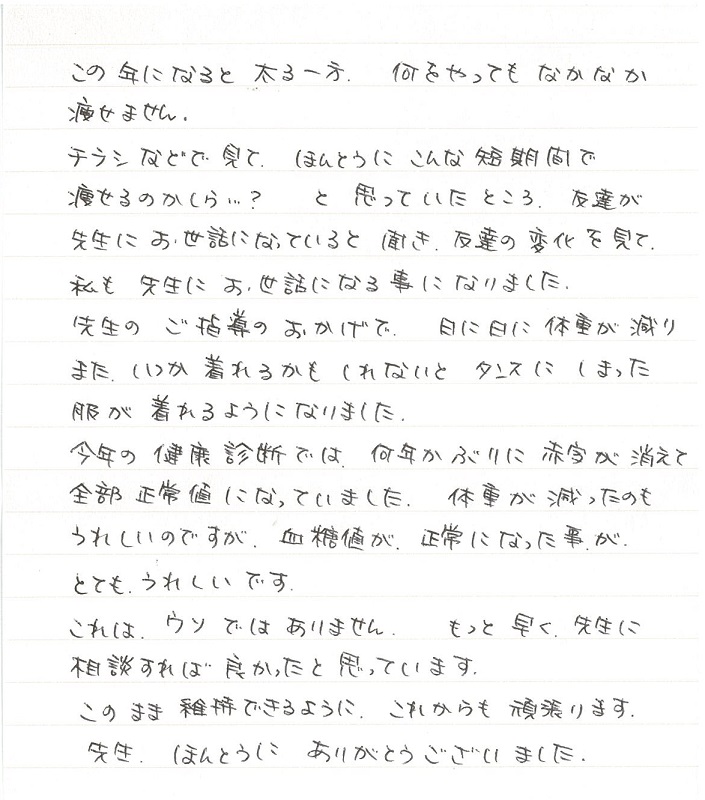 この年になると太る一方. 何をやってもなかなか
痩せません.
チラシなどで見て. ほんとうにこんな短期間で
痩せるのかしら…? と思っていたところ. 友達が
先生にお世話になっていると聞き. 友達の変化を見て.
私も先生にお世話になる事になりました.
先生のご指導のおかげで. 日に日に体重が減り
また. いつか着れるかもしれないとタンスにしまった
服が着れるようになりました.
今年の健康診断では. 何年かぶりに赤字が消えて
全部正常値になっていました. 体重が減ったのも
うれしいのですが. 血糖値が. 正常になった事が.
とても. うれしいです.
これは. ウソではありません. もっと早く. 先生に
相談すれば良かったと思っています.
このまま維持できるように. これからも頑張ります.
先生. ほんとうにありがとうございました.